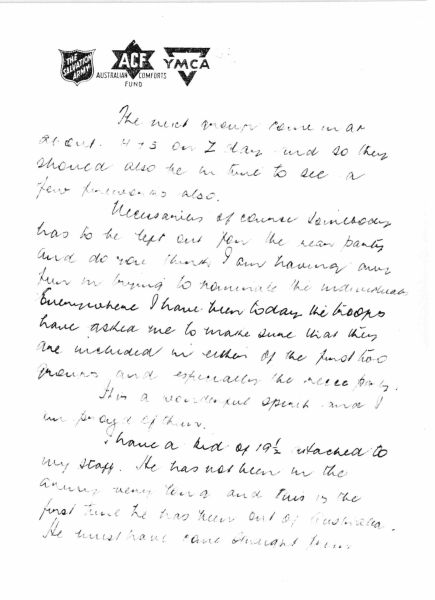 THE SALVATION ARMY
ACF
AUSTRALIAN COMFORTS FUND
YMCA
The next group come in at
about 4 + 5 on Z day and so they
should also be in time to see a
few also.
of course somebody
has to be left out for the rear party
and do you think I am having any
fun in trying to nominate the individuals
Everywhere I have been today the troops
have asked me to make sure that they
are included in either of the first two
groups and especially the recce party.
It is a wonderful spirit and I
am proud of them.
I have a kid of 19½ attached to
my staff. He has not been in the
army very long and this is the
first time he has been out of Australia.
He must have come straight from